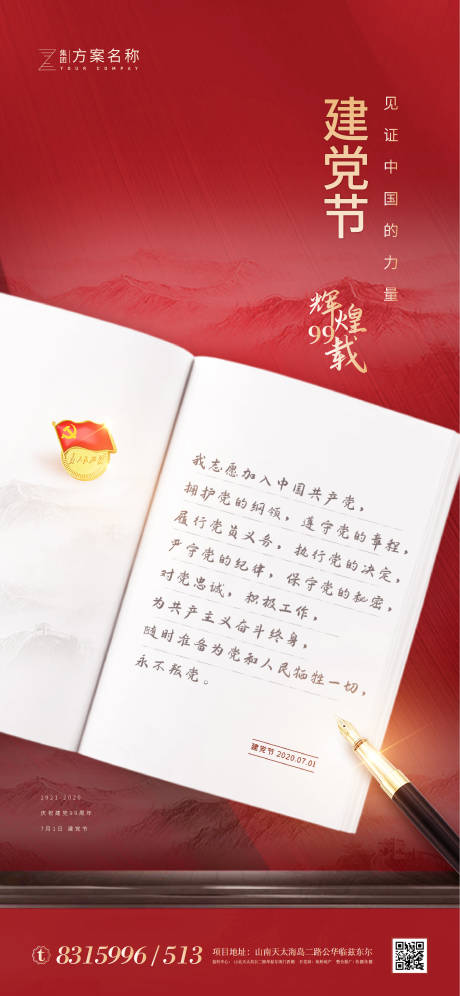 集团 方案名称
YOUR COMPAY
见证中国的力量
建党节
辉煌
99载
我志愿加入中国共产党，
拥护党的纲领，遵守党的章程，
履行党员义务，执行党的决定，
严守党的纪律，保守党的秘密，
对党忠诚，积极工作，
为共产主义奋斗终身，
随时准备为党和人民牺牲一切，
永不叛党。
建党节 2020.07.01
1921-2020
庆祝建党99周年
7月1日 建党节
8315996 / 513
项目地址：山南天太海岛二路公华临兹东尔